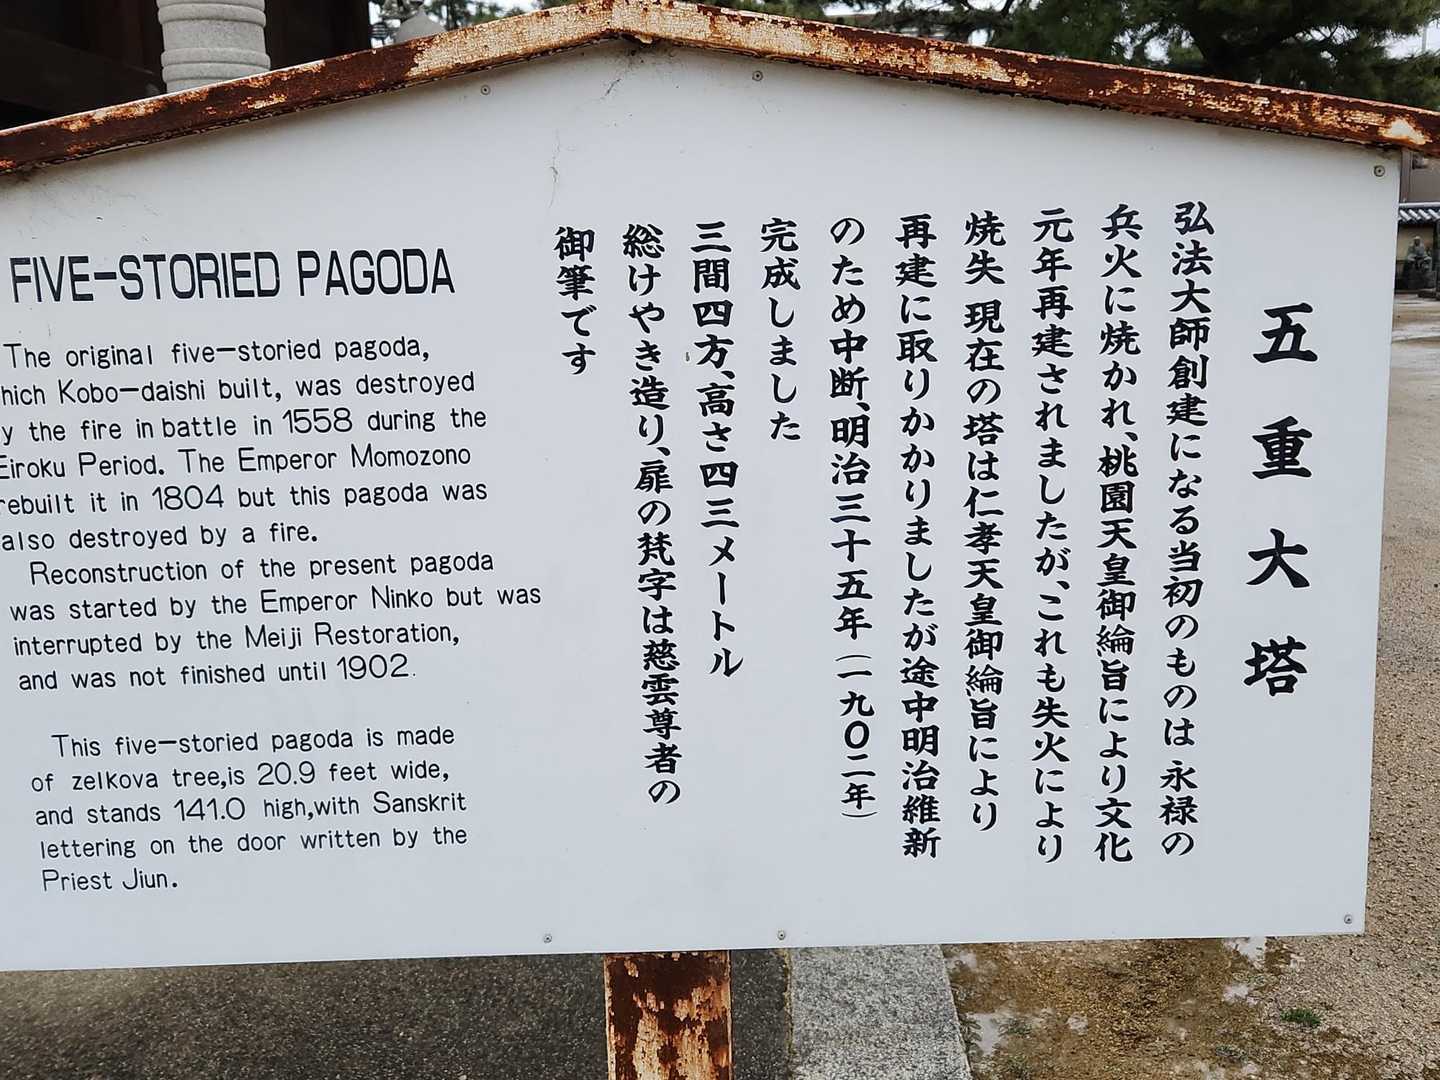 五重大塔
弘法大師創建になる当初のものは永禄の
兵火に焼かれ、桃園天皇御綸旨により文化
元年再建されましたが、これも失火により
焼失 現在の塔は仁孝天皇御綸旨により
再建に取りかかりましたが途中明治維新
のため中断、明治三十五年(一九〇二年)
完成しました
三間四方、高さ四三メートル
総けやき造り、扉の梵字は慈雲尊者の
御筆です
FIVE-STORIED PAGODA
The original five-storied pagoda,
hich Kobo-daishi built, was destroyed
y the fire in battle in 1558 during the
Eiroku Period. The Emperor Momozono
rebuilt it in 1804 but this pagoda was
also destroyed by a fire.
Reconstruction of the present pagoda
was started by the Emperor Ninko but was
interrupted by the Meiji Restoration,
and was not finished until 1902.
This five-storied pagoda is made
of zelkova tree,is 20.9 feet wide,
and stands 141.0 high,with Sanskrit
lettering on the door written by the
Priest Jiun.